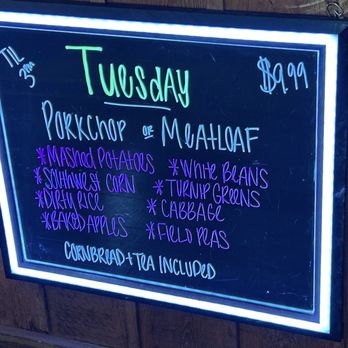 TIL 3PM
Tuesday
$9.99
PORKCHOP OR MEATLOAF
*MASHED POTATOES
*SOUTHWEST CORN
*DIRTY RICE
*BAKED APPLES
*WHITE BEANS
*TURNIP GREENS
*CABBAGE
*FIELD PEAS
CORNBREAD + TEA INCLUDED